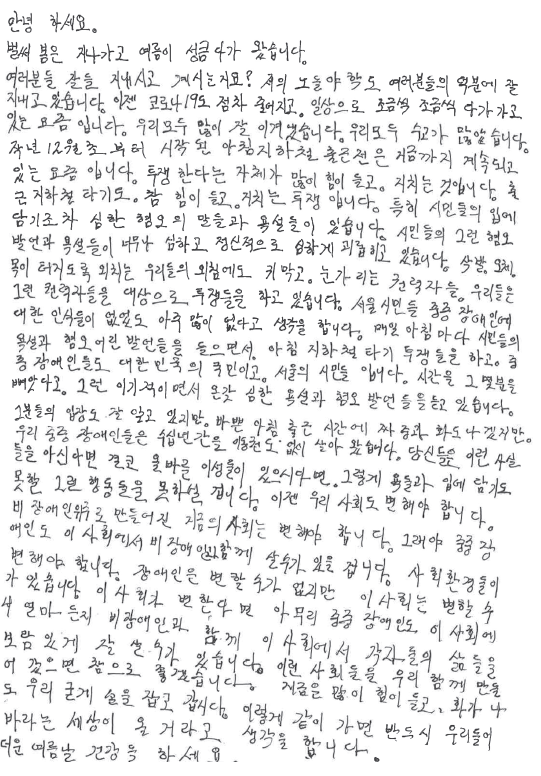 안녕 하세요.
벌써 봄은 지나가고 여름이 성큼 다가 왔습니다.
여러분들 잘들 지내시고 계시는지요? 저의 노들야학도 여러분들의 덕분에 잘
지내고 있습니다. 이젠 코로나19도 점차 줄어지고. 일상으로 조금씩 조금씩 다가가고
있는 요즘 입니다. 우리모두 많이 잘 이겨냈습니다. 우리모두 수고가 많았습니다.
작년 12월초 부터 시작 된 아침지하철 출근전은 지금까지 계속되고
있는 요즘 입니다. 투쟁 한다는 자체가 많이 힘이 들고. 지치는 것입니다. 출
근 지하철 타기도. 참 힘이 들고. 거치는 투쟁 입니다. 특히 시민들의 입에
담기조차 심한 혐오의 말들과 욕설들이 있습니다. 시민들의 그런 혐오
발언과 욕설들이 너무나 심하고 정신적으로 심하게 괴롭히고 있습니다. 삭발, 오체,
목이 터져도록 외치는 우리들의 외침에도 귀막고. 눈가리는 권력자들. 우리들은
그런 권력자들을 대상으로 투쟁들을 하고 있습니다. 서울시민들 중증 장애인에
대한 인식들이 없어도 아주 많이 없다고 생각을 합니다. 매일 아침마다 시민들의
욕설과 혐오 어린 발언들을 들으면서. 아침 지하철 타기 투쟁들을 하고. 중
증 장애인들도 대한민국의 국민이고. 서울의 시민들 입니다. 시간을 그분들을
빼앗다고. 그런 이기적이면서 온갖 심한 욕설과 혐오 발언들을 듣고 있습니다.
그분들의 입장도 잘 알고 있지만. 바쁜 아침 출근 시간에 짜증과 화도 나겠지만.
우리 중증 장애인들은 수십년간을 이동권도 없이 살아 왔습니다. 당신들은 이런 사실
들을 아신다면 결코 올바른 이성들이 있으시다면. 그렇게 욕들과 입에 담기도
못할 그런 행동들을 못하실 겁니다. 이젠 우리 사회도 변해야 합니다.
비장애인위주로 만들어진 지금의 사회는 변해야 합니다. 그래야 중증 장
애인도 이 사회에서 비장애인과 함께 살수가 있을 겁니다. 사회환경들이
변해야 합니다. 장애인은 변할 수가 없지만 이 사회는 변할 수
가 있습니다. 이 사회가 변한다면 아무리 중증 장애인도 이 사회에
서 얼마 든지 비장애인과 함께 이 사회에서 각자들의 삶들을
보람 있게 잘 살 수가 있습니다. 이런 사회들을 우리 함께 만들
어 갔으면 참으로 좋겠습니다. 지금은 많이 힘이 들고. 화가 나
도 우리 굳게 손을 잡고 갑시다. 이렇게 같이 가면 반드시 우리들이
바라는 세상이 올 거라고 생각을 합니다.
더운 여름날 건강들 하세요.